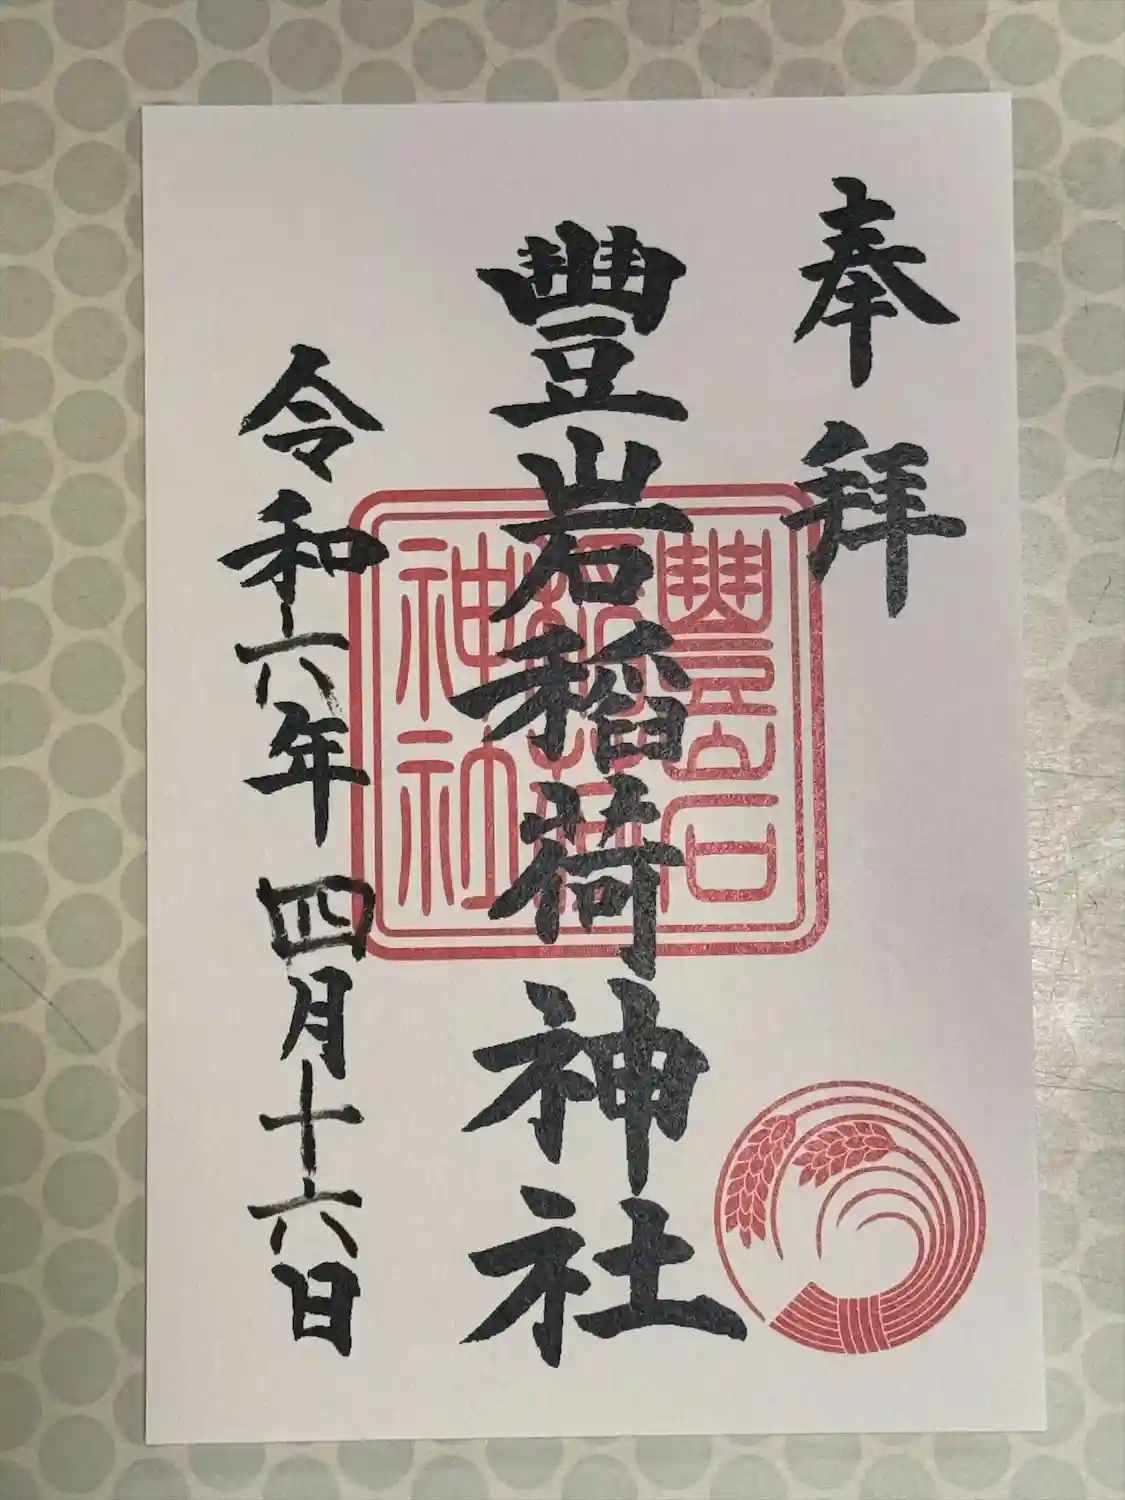 奉拝
豐岩稲荷神社
豐岩
稲荷
神社
令和六年四月十六日